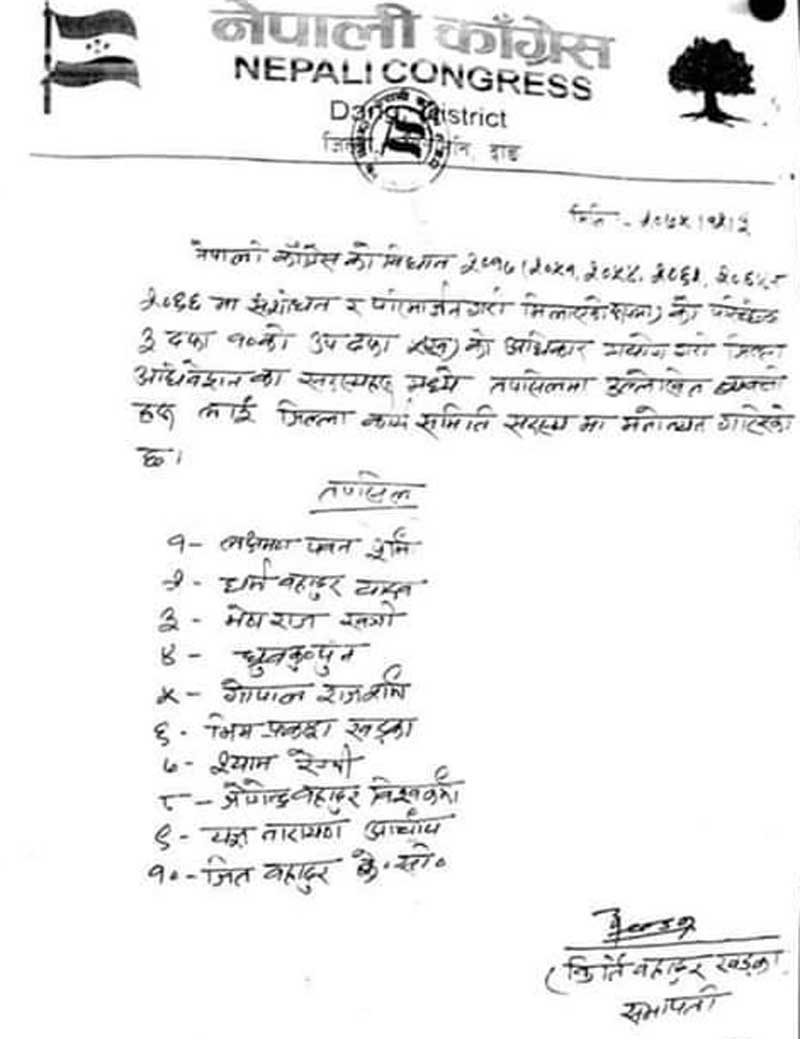 नेपाली काँग्रेस
NEPALI CONGRESS
Dang District
जिल्ला दाङ
मिति -
नेपाली काँग्रेस को विधान २०१७ (२०५१, २०५८, २०६१, २०६५ र
२०६६ मा संशोधन र परिमार्जन गरी मिलाएको को परिच्छेद
३ दफा १० को उपदफा को अधिकार प्रयोग गरी जिल्ला
अधिवेशन का सदस्यहरु मध्ये तपसिलमा उल्लेखित व्यक्ती
हरु लाई जिल्ला कार्य समिति सदस्य मा मनोनयन गरिएको
छ।
तपसिल
१- लक्ष्मण
२- धर्म बहादुर
३- मेघराज खत्री
४-
५- गोपाल राजवंशी
६- भिम प्रकाश खड्का
७- श्याम रेग्मी
८- बहादुर विश्वकर्मा
९- यज्ञ नारायण आचार्य
१०- जित बहादुर के॰सी॰
बहादुर खड्का
सभापती